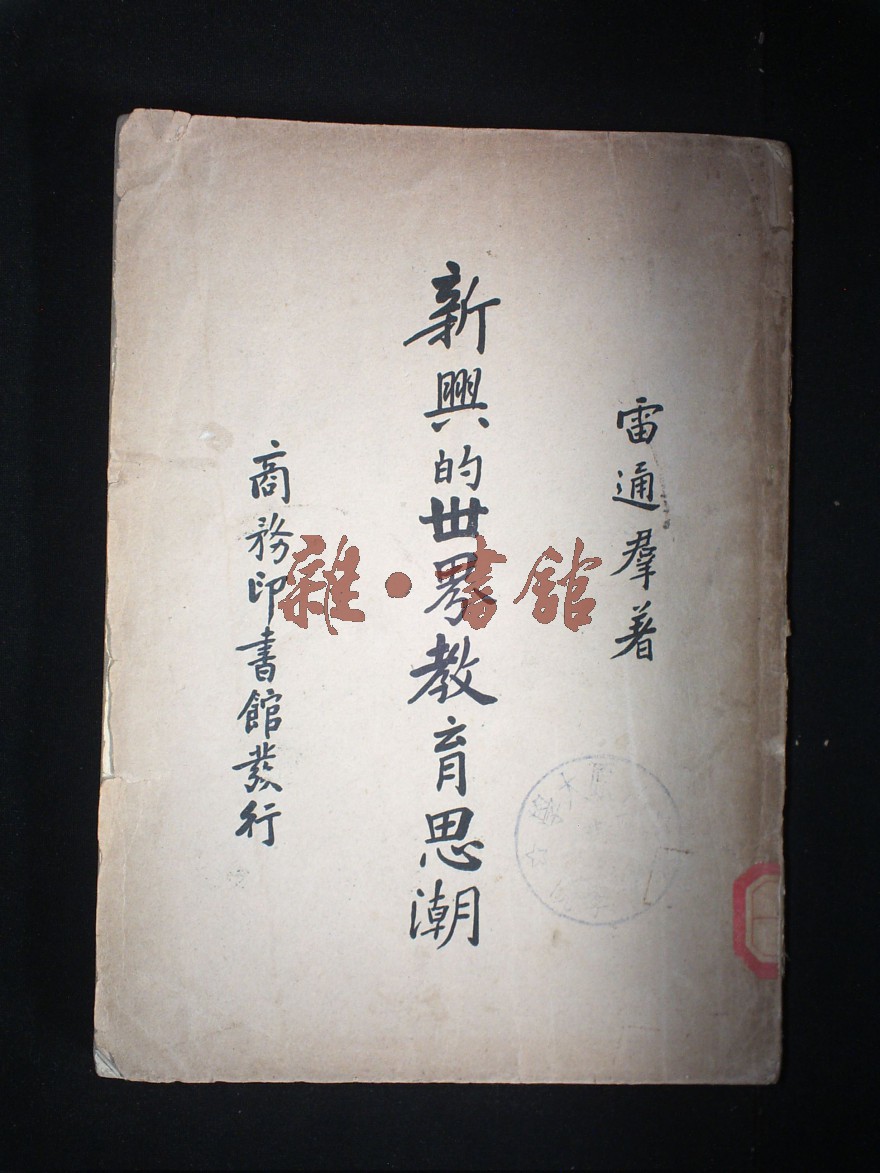 雷通羣著
新興的世界教育思潮
商務印書館發行
雜·書館